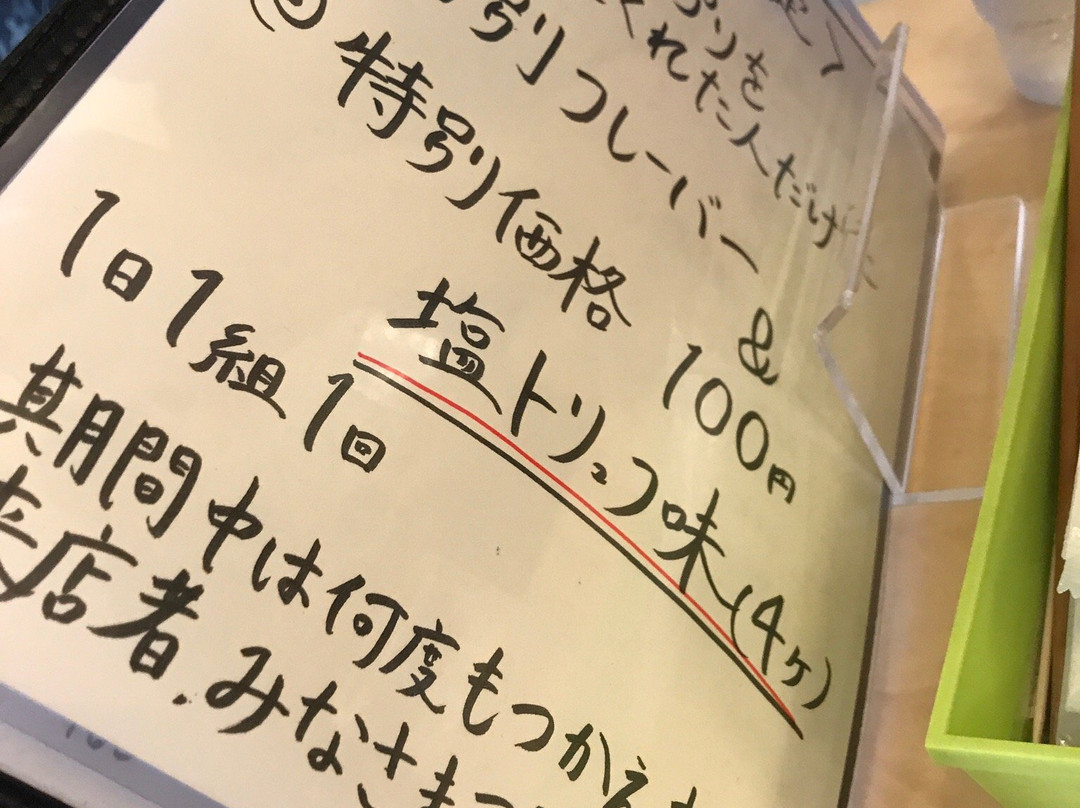 くれた人だけに
別フレーバー &
② 特別価格 100円
塩トリュフ味 (4ヶ)
1日1組1回
其期間中は何度もつかえ
来店者、みなさま